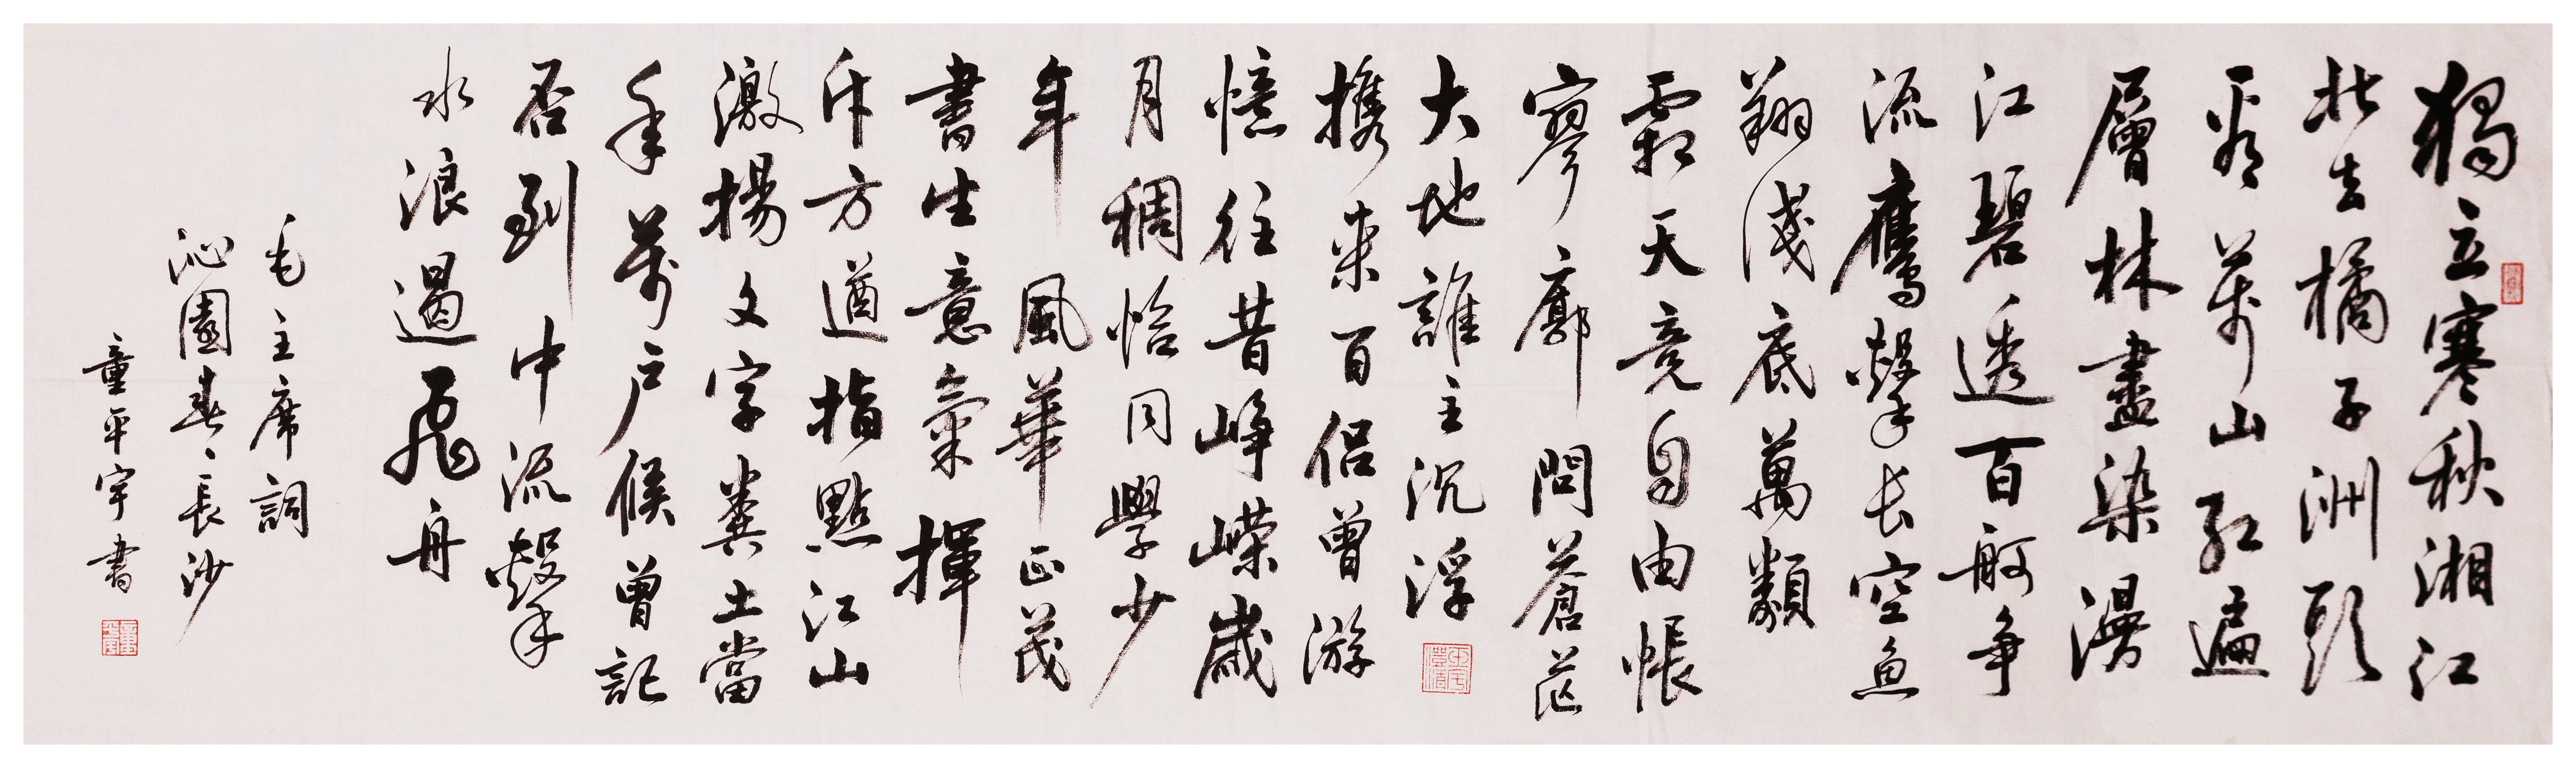 獨立寒秋湘江
北去橘子洲頭
看萬山紅遍
層林盡染漫
江碧透百舸争
流鷹擊长空魚
翔淺底萬類
霜天竞自由悵
寥廓問蒼茫
大地誰主沉浮
攜来百侣曾游
憶往昔峥嵘歲
月稠恰同學少
年風華正茂
書生意氣揮
斥方遒指點江山
激揚文字糞土當
年萬户候曾記
否到中流擊
水浪遏飛舟
毛主席詞
沁園春長沙
童平宇書